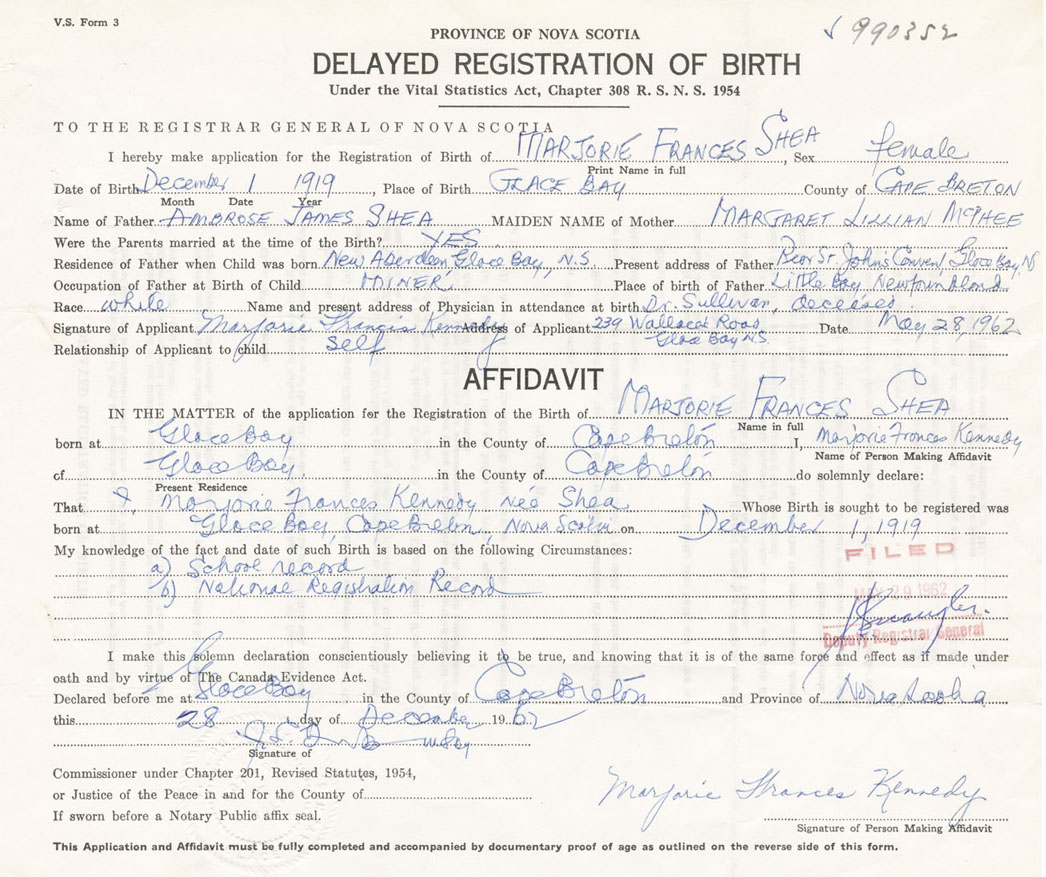 V.S. Form 3
990352
PROVINCE OF NOVA SCOTIA
DELAYED REGISTRATION OF BIRTH
Under the Vital Statistics Act, Chapter 308 R. S. N. S. 1954
TO THE REGISTRAR GENERAL OF NOVA SCOTIA
I hereby make application for the Registration of Birth of MARJORIE FRANCES SHEA, Sex female
Print Name in full
Date of Birth December 1 1919, Place of Birth GLACE BAY County of CAPE BRETON
Month Date Year
Name of Father AMBROSE JAMES SHEA MAIDEN NAME of Mother MARGARET LILLIAN MCPHEE
Were the Parents married at the time of the Birth? YES
Residence of Father when Child was born New Aberdeen, Glace Bay, N.S. Present address of Father Rear St. Johns Convent, Glace Bay, NS
Occupation of Father at Birth of Child MINER. Place of birth of Father Little Bay Newfoundland
Race white Name and present address of Physician in attendance at birth Dr. Sullivan, deceased
Signature of Applicant Marjorie Francis Kennedy Address of Applicant 239 Wallace Road, Date May 28, 1962
Glace Bay N.S.
Relationship of Applicant to child self
AFFIDAVIT
IN THE MATTER of the application for the Registration of the Birth of MARJORIE FRANCES SHEA
Name in full
born at Glace Bay in the County of Cape Breton I, Marjorie Frances Kennedy
Name of Person Making Affidavit
of Glace Bay in the County of Cape Breton do solemnly declare:
Present Residence
That I, Marjorie Frances Kennedy nee Shea Whose Birth is sought to be registered was
born at Glace Bay, Cape Breton, Nova Scotia on December 1, 1919
My knowledge of the fact and date of such Birth is based on the following Circumstances:
FILED
a) School record
b) National Registration Record
MAY 29 1962
Deputy Registrar General
I make this solemn declaration conscientiously believing it to be true, and knowing that it is of the same force and effect as if made under
oath and by virtue of The Canada Evidence Act.
Declared before me at Glace Bay in the County of Cape Breton and Province of Nova Scotia
this 28 day of December 1962
Signature of
Commissioner under Chapter 201, Revised Statutes, 1954,
or Justice of the Peace in and for the County of
If sworn before a Notary Public affix seal.
Marjorie Frances Kennedy
Signature of Person Making Affidavit
This Application and Affidavit must be fully completed and accompanied by documentary proof of age as outlined on the reverse side of this form.